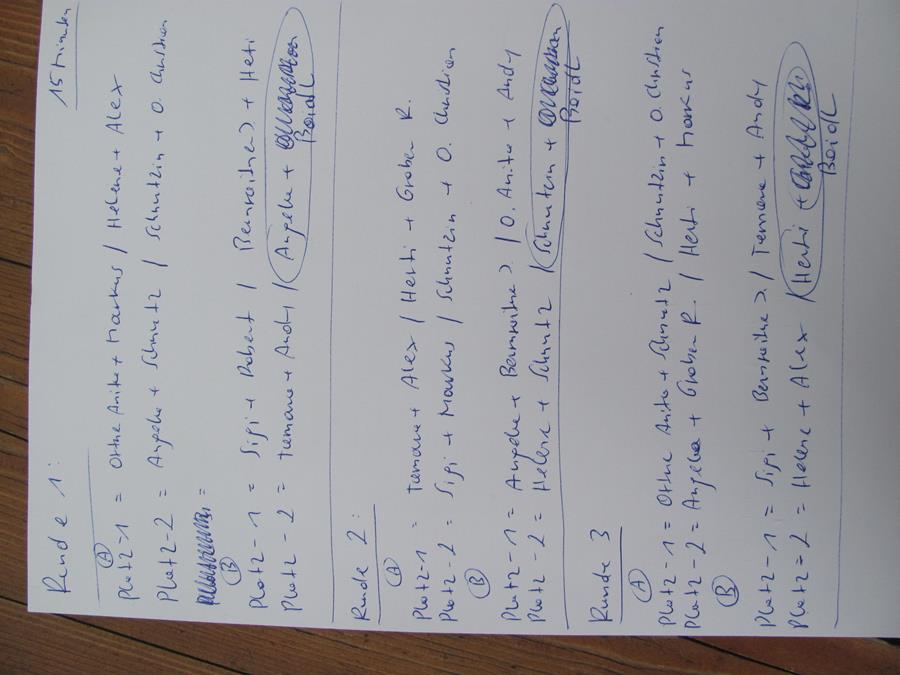 15 Minuten
Runde 1:
(A)
Platz-1 = Ottne Anita + Markus / Helene + Alex
Platz-2 = Angelia + Schmutz / Schnutzin + O. Christian
(B)
Platz-1 = Sigi + Robert / Bernreithner + Herti
Platz-2 = + Andy / Angelia + Boidl
Runde 2:
(A)
Platz-1 = + Alex / Herti + Gruber R.
Platz-2 = Sigi + Markus / Schnutzin + O. Christian
(B)
Platz-1 = Angelia + / O. Anita + Andy
Platz-2 = Helene + Schmutz / + Boidl
Runde 3
(A)
Platz-1 = Ottne Anita + Schmutz / Schnutzin + O. Christian
Platz-2 = Angelia + Gruber R. / Herti + Markus
(B)
Platz-1 = Sigi + / + Andy
Platz=2 = Helene + Alex / Herti + Boidl